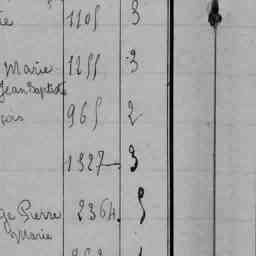 1105 3
Marie 1255 3
Jean Baptiste
965 2
1327 3
Pierre 2364 5
Marie